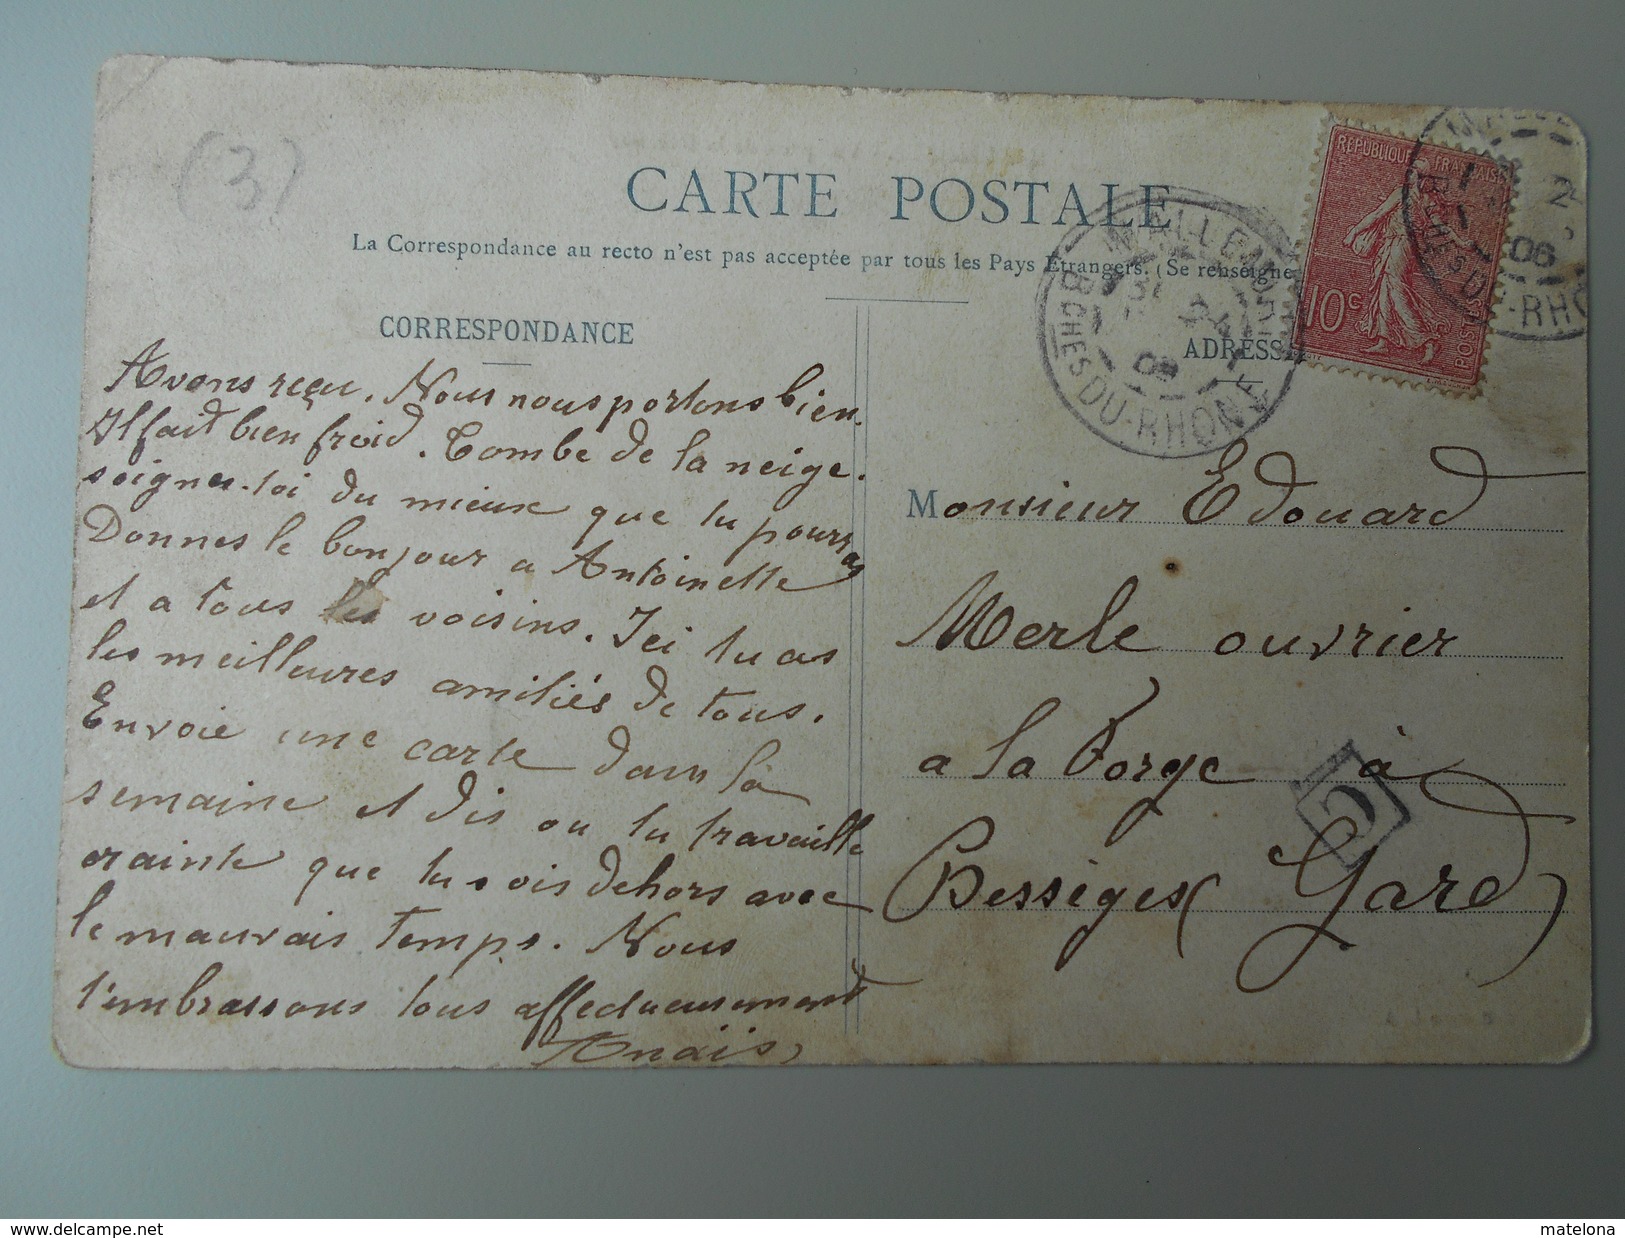 (3)
CARTE POSTALE
La Correspondance au recto n'est pas acceptée par tous les Pays Etrangers. (Se renseigne
CORRESPONDANCE
Avons reçu. Nous nous portons bien.
Il fait bien froid. Tombe de la neige.
soignes-toi du mieux que tu pourras
Donnes le bonjour a Antoinette
et a tous les voisins. Ici tu as
les meilleures amitiés de tous.
Envoie une carte dans la
semaine et dis ou tu travaille
crainte que tu sois dehors avec
le mauvais temps. Nous
t'embrassons tous affectueusement
Anaïs
ADRESSE
Monsieur Edouard
Merle ouvrier
a la Forge à
Bessèges (Gard)
REPUBLIQUE FRANÇAISE
10c
POSTES
BCHES DU-RHONE
06
BCHES DU-RHO
06
delcampe.net
matelona